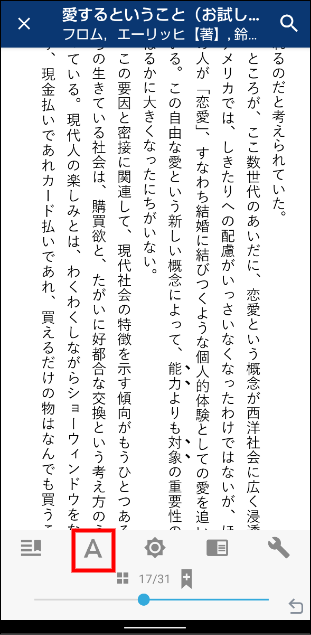 愛するということ（お試し...
フロム，エーリッヒ【著】, 鈴...
れるのだと考えられていた。
ところが、ここ数世代のあいだに、恋愛という概念が西洋社会に広く浸透
メリカでは、しきたりへの配慮がいっさいなくなったわけではないが、ほ
人が「恋愛」、すなわち結婚に結びつくような個人的体験としての愛を追い
る。この自由な愛という新しい概念によって、能力よりも対象の重要性の
はるかに大きくなったにちがいない。
この要因と密接に関連して、現代社会の特徴を示す傾向がもうひとつある
らの生きている社会は、購買欲と、たがいに好都合な交換という考え方の
ている。現代人の楽しみとは、わくわくしながらショーウィンドウをな
、現金払いであれカード払いであれ、買えるだけの物はなんでも買うこ
A
17/31